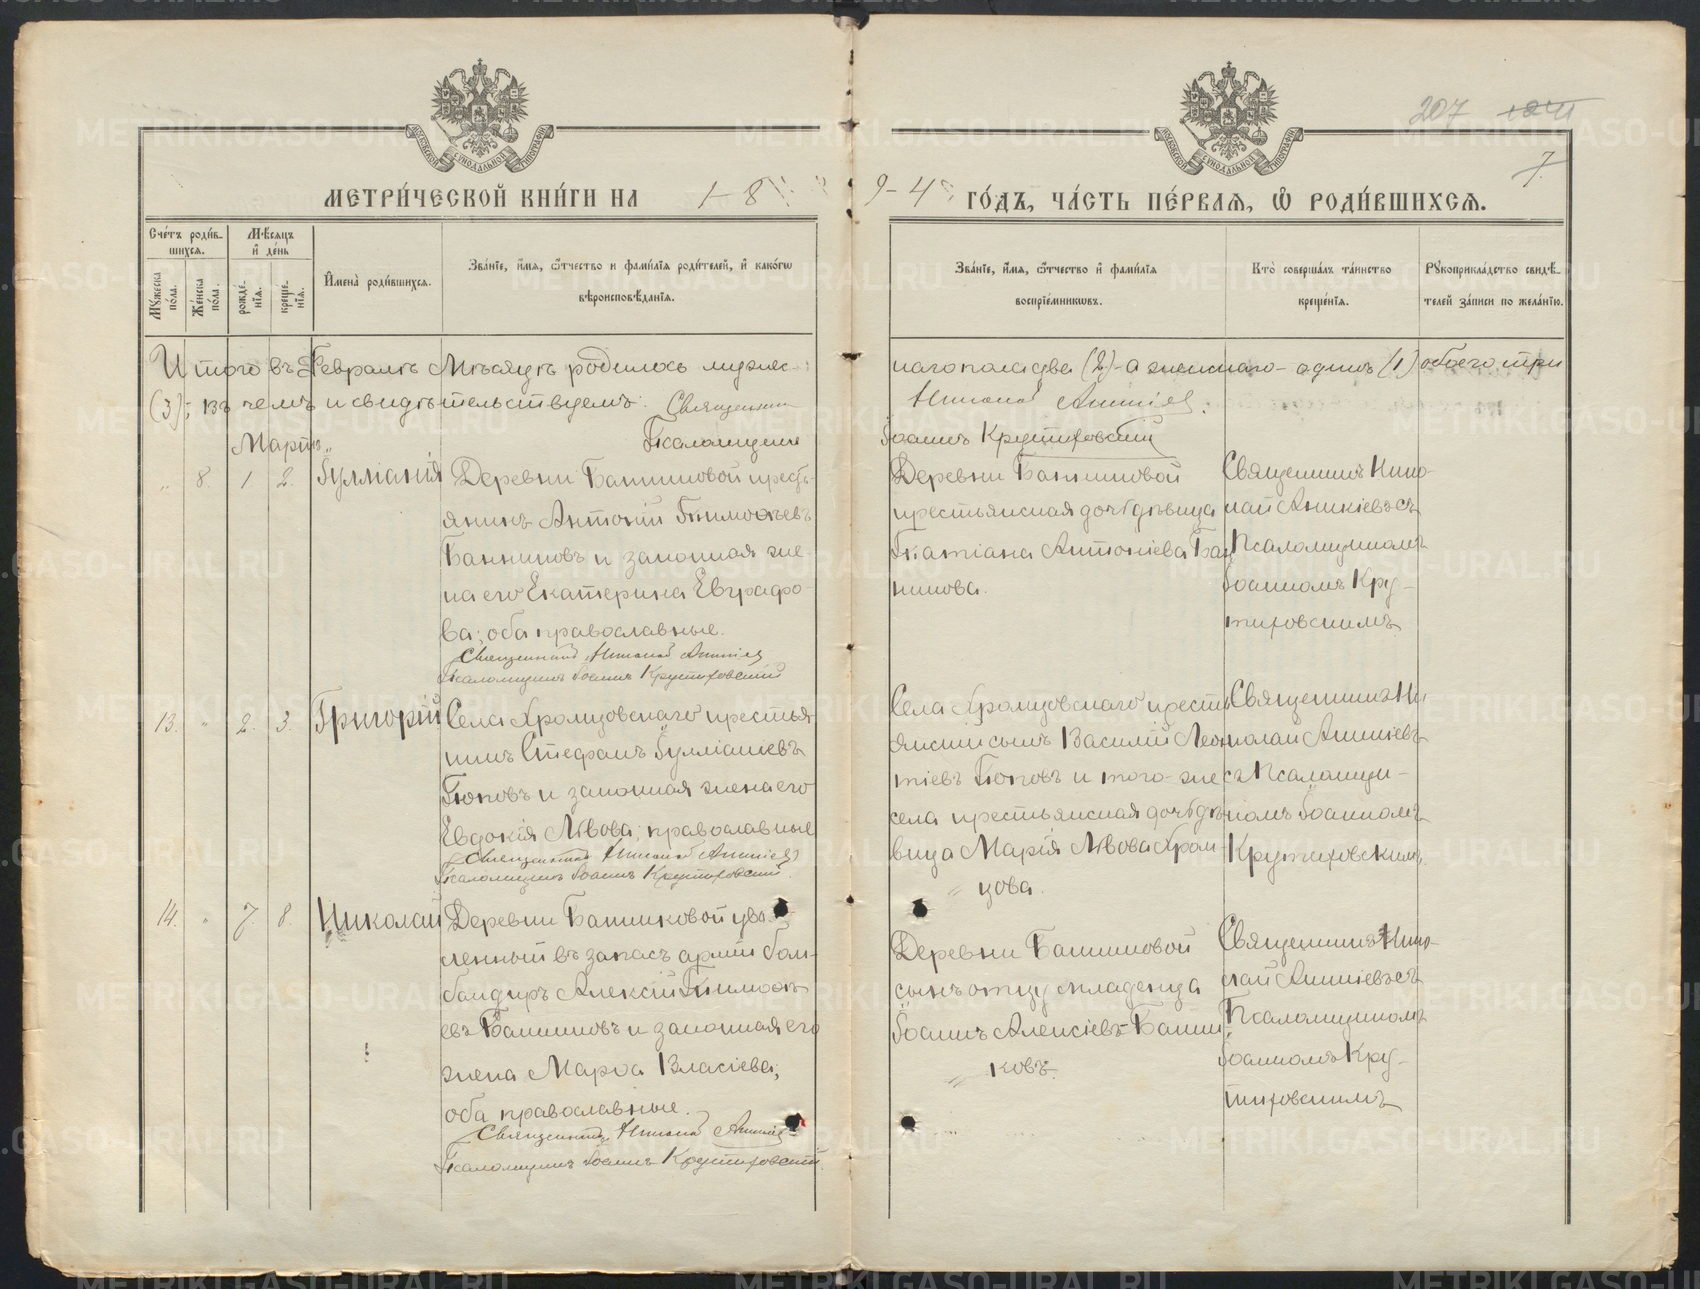 207
7.
МОСКОВСКОЙ СѴНОДАЛЬНОЙ ТИПОГРАФІИ
МОСКОВСКОЙ СѴНОДАЛЬНОЙ ТИПОГРАФІИ
МЕТРИ́ЧЕСКОЙ КНИ́ГИ НА 18
94 ГО́ДЪ, ЧА́СТЬ ПЕ́РВАѦ, Ѿ РОДИ́ВШИХСѦ.
Сче́тъ роди́в-
шихсѧ.
Мꙋжеска по́ла.
Же́нска по́ла.
Мѣ́сѧцъ и҆ де́нь
рожде́-
нїѧ.
креще́-
нїѧ.
И҆мена̀ роди́вшихсѧ.
Зва́нїе, и҆́мѧ, ѻ҆́тчество и фами́лїѧ роди́телей, и҆ како́гѡ
вѣроисповѣ́данїѧ.
Зва́нїе, и҆́мѧ, ѻ҆́тчество и҆ фами́лїѧ
воспрїе́мникѡвъ.
Кто̀ соверша́лъ та́инство
креще́нїѧ.
Рꙋкоприкла́дство свидѣ́-
телей за́писи по жела́нїю.
Итого въ Февралѣ Мѣсяцѣ родилось мужес-
наго пола два (2) - а женскаго - одинъ (1) обоего три
(3); въ чемъ и свидѣтельствуемъ: Священникъ
Николай Аникіев.
Мартъ Псаломщикъ
Іоаннъ Крутиховскій
„ 8. 1 2. Іуліанія
Деревни Банниковой кресть-
янинъ Антоній Тимоѳеевъ
Банниковъ и законная же-
на его Екатерина Евграфо-
ва; оба православные.
Священникъ Николай Аникіев
Псаломщикъ Іоаннъ Крутиховский
Деревни Банниковой
крестьянская дочь дѣвица
Татіана Антоніева Бан
никова.
Священникъ Нико-
лай Аникіевъ съ
Псаломщикомъ
Іоанномъ Кру-
тиховскимъ
13. „ 2. 3. Григорій
Села Хромцовскаго крестья-
нинъ Стефанъ Іуліаніевъ
Поповъ и законная жена его
Евдокія Львова; православные
Священникъ Николай Аникіев
Псаломщикъ Іоаннъ Крутиховский.
Села Хромцовскаго кресть
янскій сынъ Василій Леон
тіевъ Поповъ и того-же
села крестьянская дочь дѣ
вица Марія Львова Хром-
„ цова.
Священникъ Ни
колай Аникіевъ
съ Псаломщи-
комъ Іоанномъ
Крутиховскимъ.
14. „ 7. 8. Николай
Деревни Банниковой уво-
ленный въ запасъ арміи бом-
бандиръ Алексій Тимоѳе
евъ Банниковъ и законная его
жена Марѳа Власіева;
оба православные.
Священникъ Николай Аникіев
Псаломщикъ Іоаннъ Крутиховский
Деревни Банниковой
сынъ отцу младенца
Іоаннъ Алексіевъ Банни
„ ковъ.
Священникъ Нико-
лай Аникіевъ съ
Псаломщикомъ
Іоанномъ Кру-
тиховскимъ
METRIKI.GASO-URAL.RU